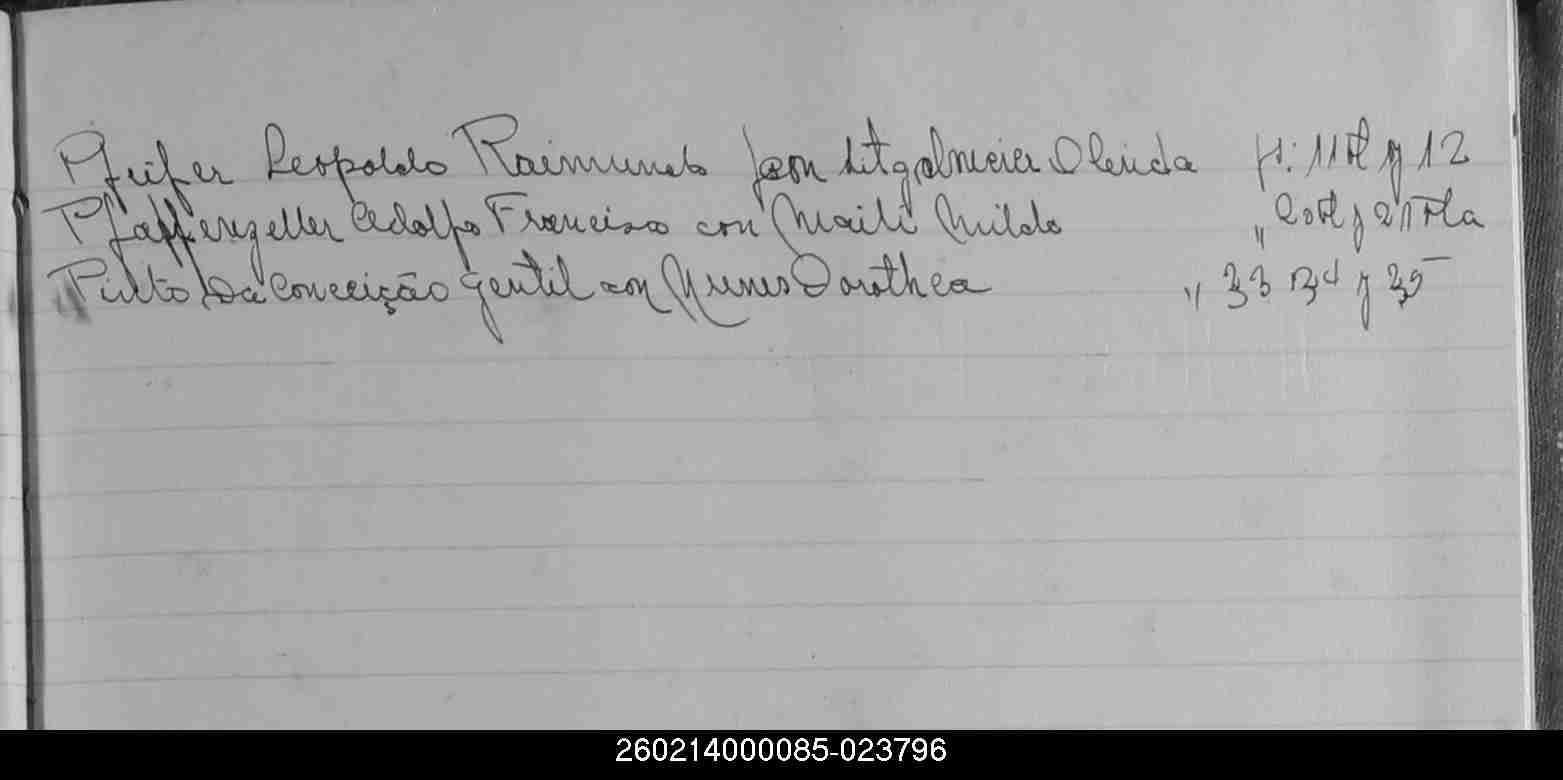 Pfeifer Leopoldo Raimundo con Olenda f: 11 y 12
Pfaffenzeller Adolfo Francisco con Maili Milda " 20 y 21
Pinto Da Conceição Gentil con Nunes Dorothea " 33 34 y 35
260214000085-023796